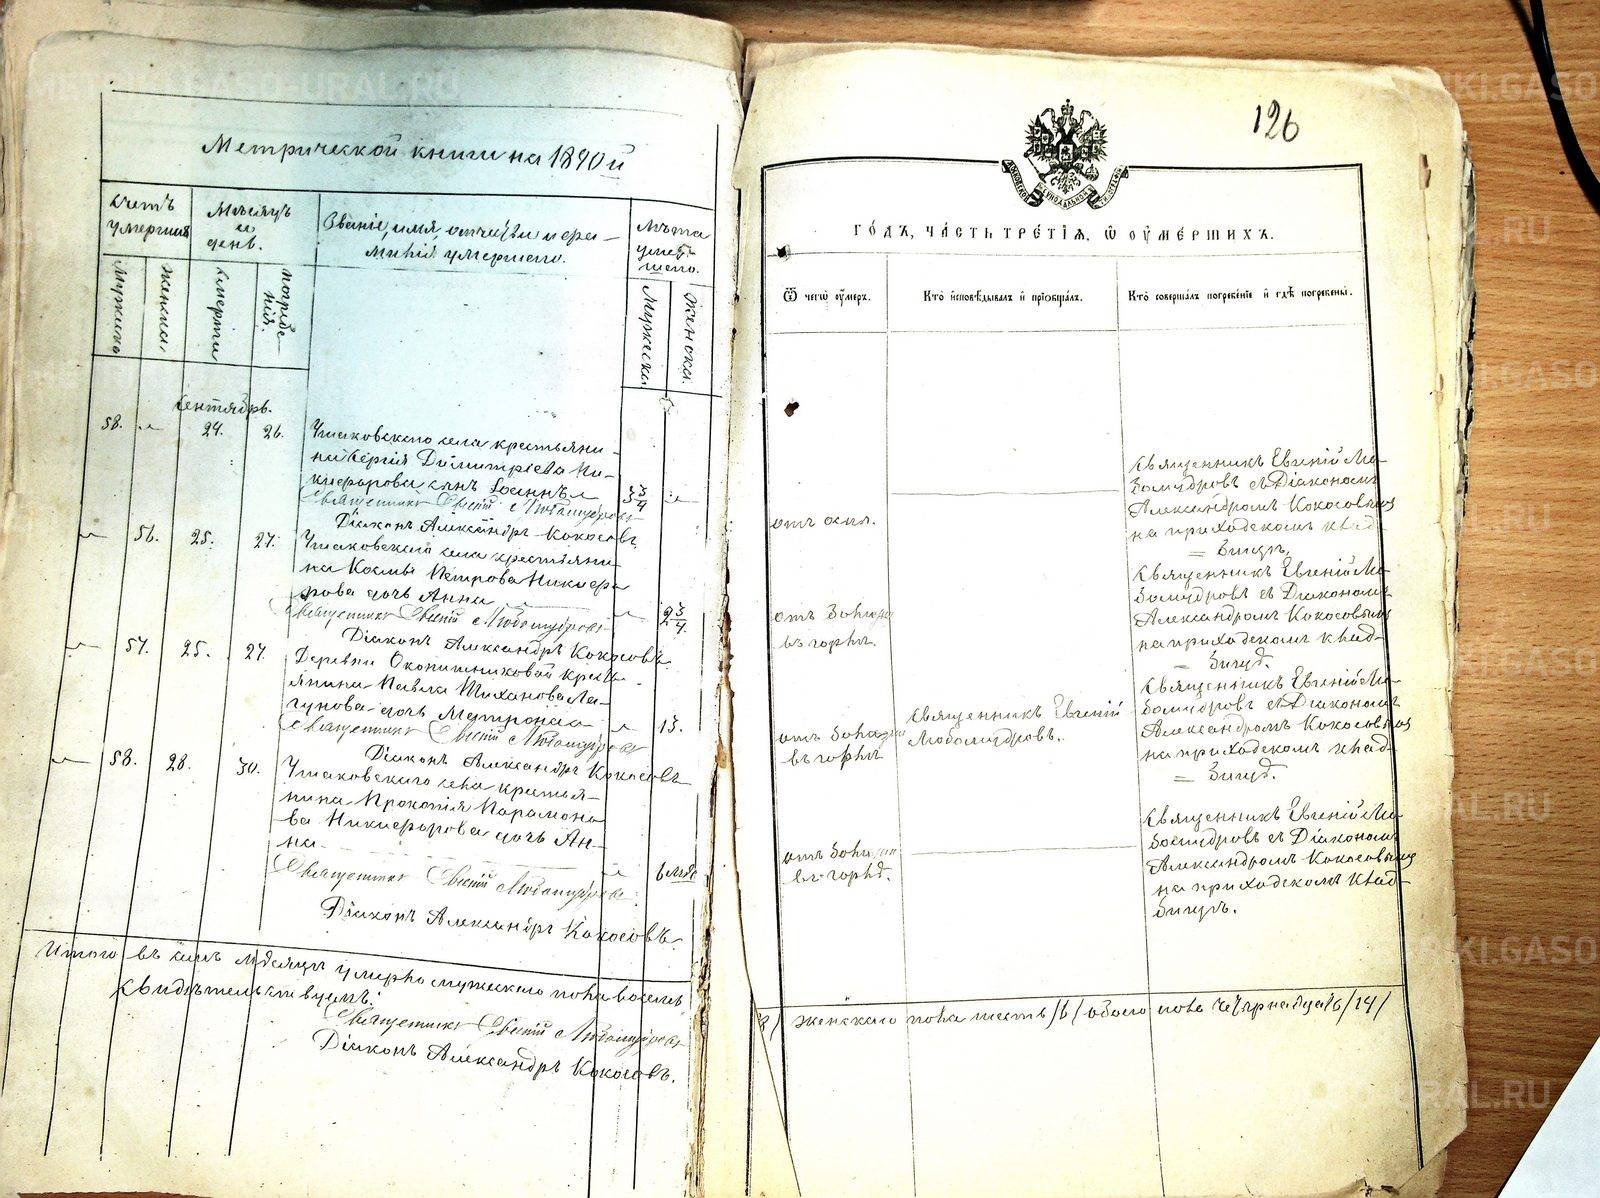 Метрической книги на 1890й
Счетъ умершихъ
Мѣсяцъ и день.
Званіе, имя, отчество и фамилія умершего.
Лѣта умершего.
Мужска
Женска
Смерти
Погребенія.
Мужска
Женска.
Сентябрь.
58. " 24. 26.
Ушаковскаго села крестьяни-
на Сергія Димитріева Ни-
кифорова сынъ Іоаннъ
3 3/4 "
Священникъ Евгеній Любомудровъ
Діаконъ Александръ Кокосовъ
" 56. 25. 27.
Ушаковскаго села крестьяни-
на Космы Петрова Никифо-
рова дочь Анна
" 2 3/4.
Священникъ Евгеній Любомудровъ
Діаконъ Александръ Кокосовъ.
" 57. 25. 27.
Деревни Окопишниковой кресть-
янина Павла Тиханова Ла-
гунова дочь Матрона
" 13.
Священникъ Евгеній Любомудровъ
Діаконъ Александръ Кокосовъ
" 58. 28. 30.
Ушаковскаго села крестья-
нина Прокопія Парамоно-
ва Никифорова дочь Ан-
на.
"
Священникъ Евгеній Любомудровъ.
Діаконъ Александръ Кокосовъ.
Итого въ семъ мѣсяцѣ умерло мужескаго пола восемь
Свидѣтельствуемъ:
Священникъ Евгеній Любомудровъ
Діаконъ Александръ Кокосовъ.
126
МОСКОВСКОЙ СѴНОДАЛЬНОЙ ТИПОГРАФІИ
ГОДЪ, ЧАСТЬ ТРЕТІЯ, Ѿ ОУМЕРШИХЪ.
Ѿ чегѡ оумеръ.
Кто исповѣдывалъ и пріобщалъ.
Кто совершалъ погребеніе и гдѣ погребены.
отъ оспы.
Священникъ Евгеній Лю-
бомудровъ съ Діакономъ
Александромъ Кокосовымъ
на приходскомъ клад-
= бищѣ.
отъ боли
въ горлѣ.
Священникъ Евгеній Лю-
бомудровъ съ Діакономъ
Александромъ Кокосовымъ
на приходскомъ клад-
= бищѣ.
отъ боли
въ горлѣ
Священникъ Евгеній
Любомудровъ.
Священникъ Евгеній Лю-
бомудровъ съ Діакономъ
Александромъ Кокосовымъ
на приходскомъ клад-
= бищѣ.
отъ боли
въ горлѣ.
Священникъ Евгеній Лю-
бомудровъ съ Діакономъ
Александромъ Кокосовымъ
на приходскомъ клад-
бищѣ.
8/ женскаго пола шесть /6/ обоего пола четырнадцать /14/
METRIKI.GASO-URAL.RU